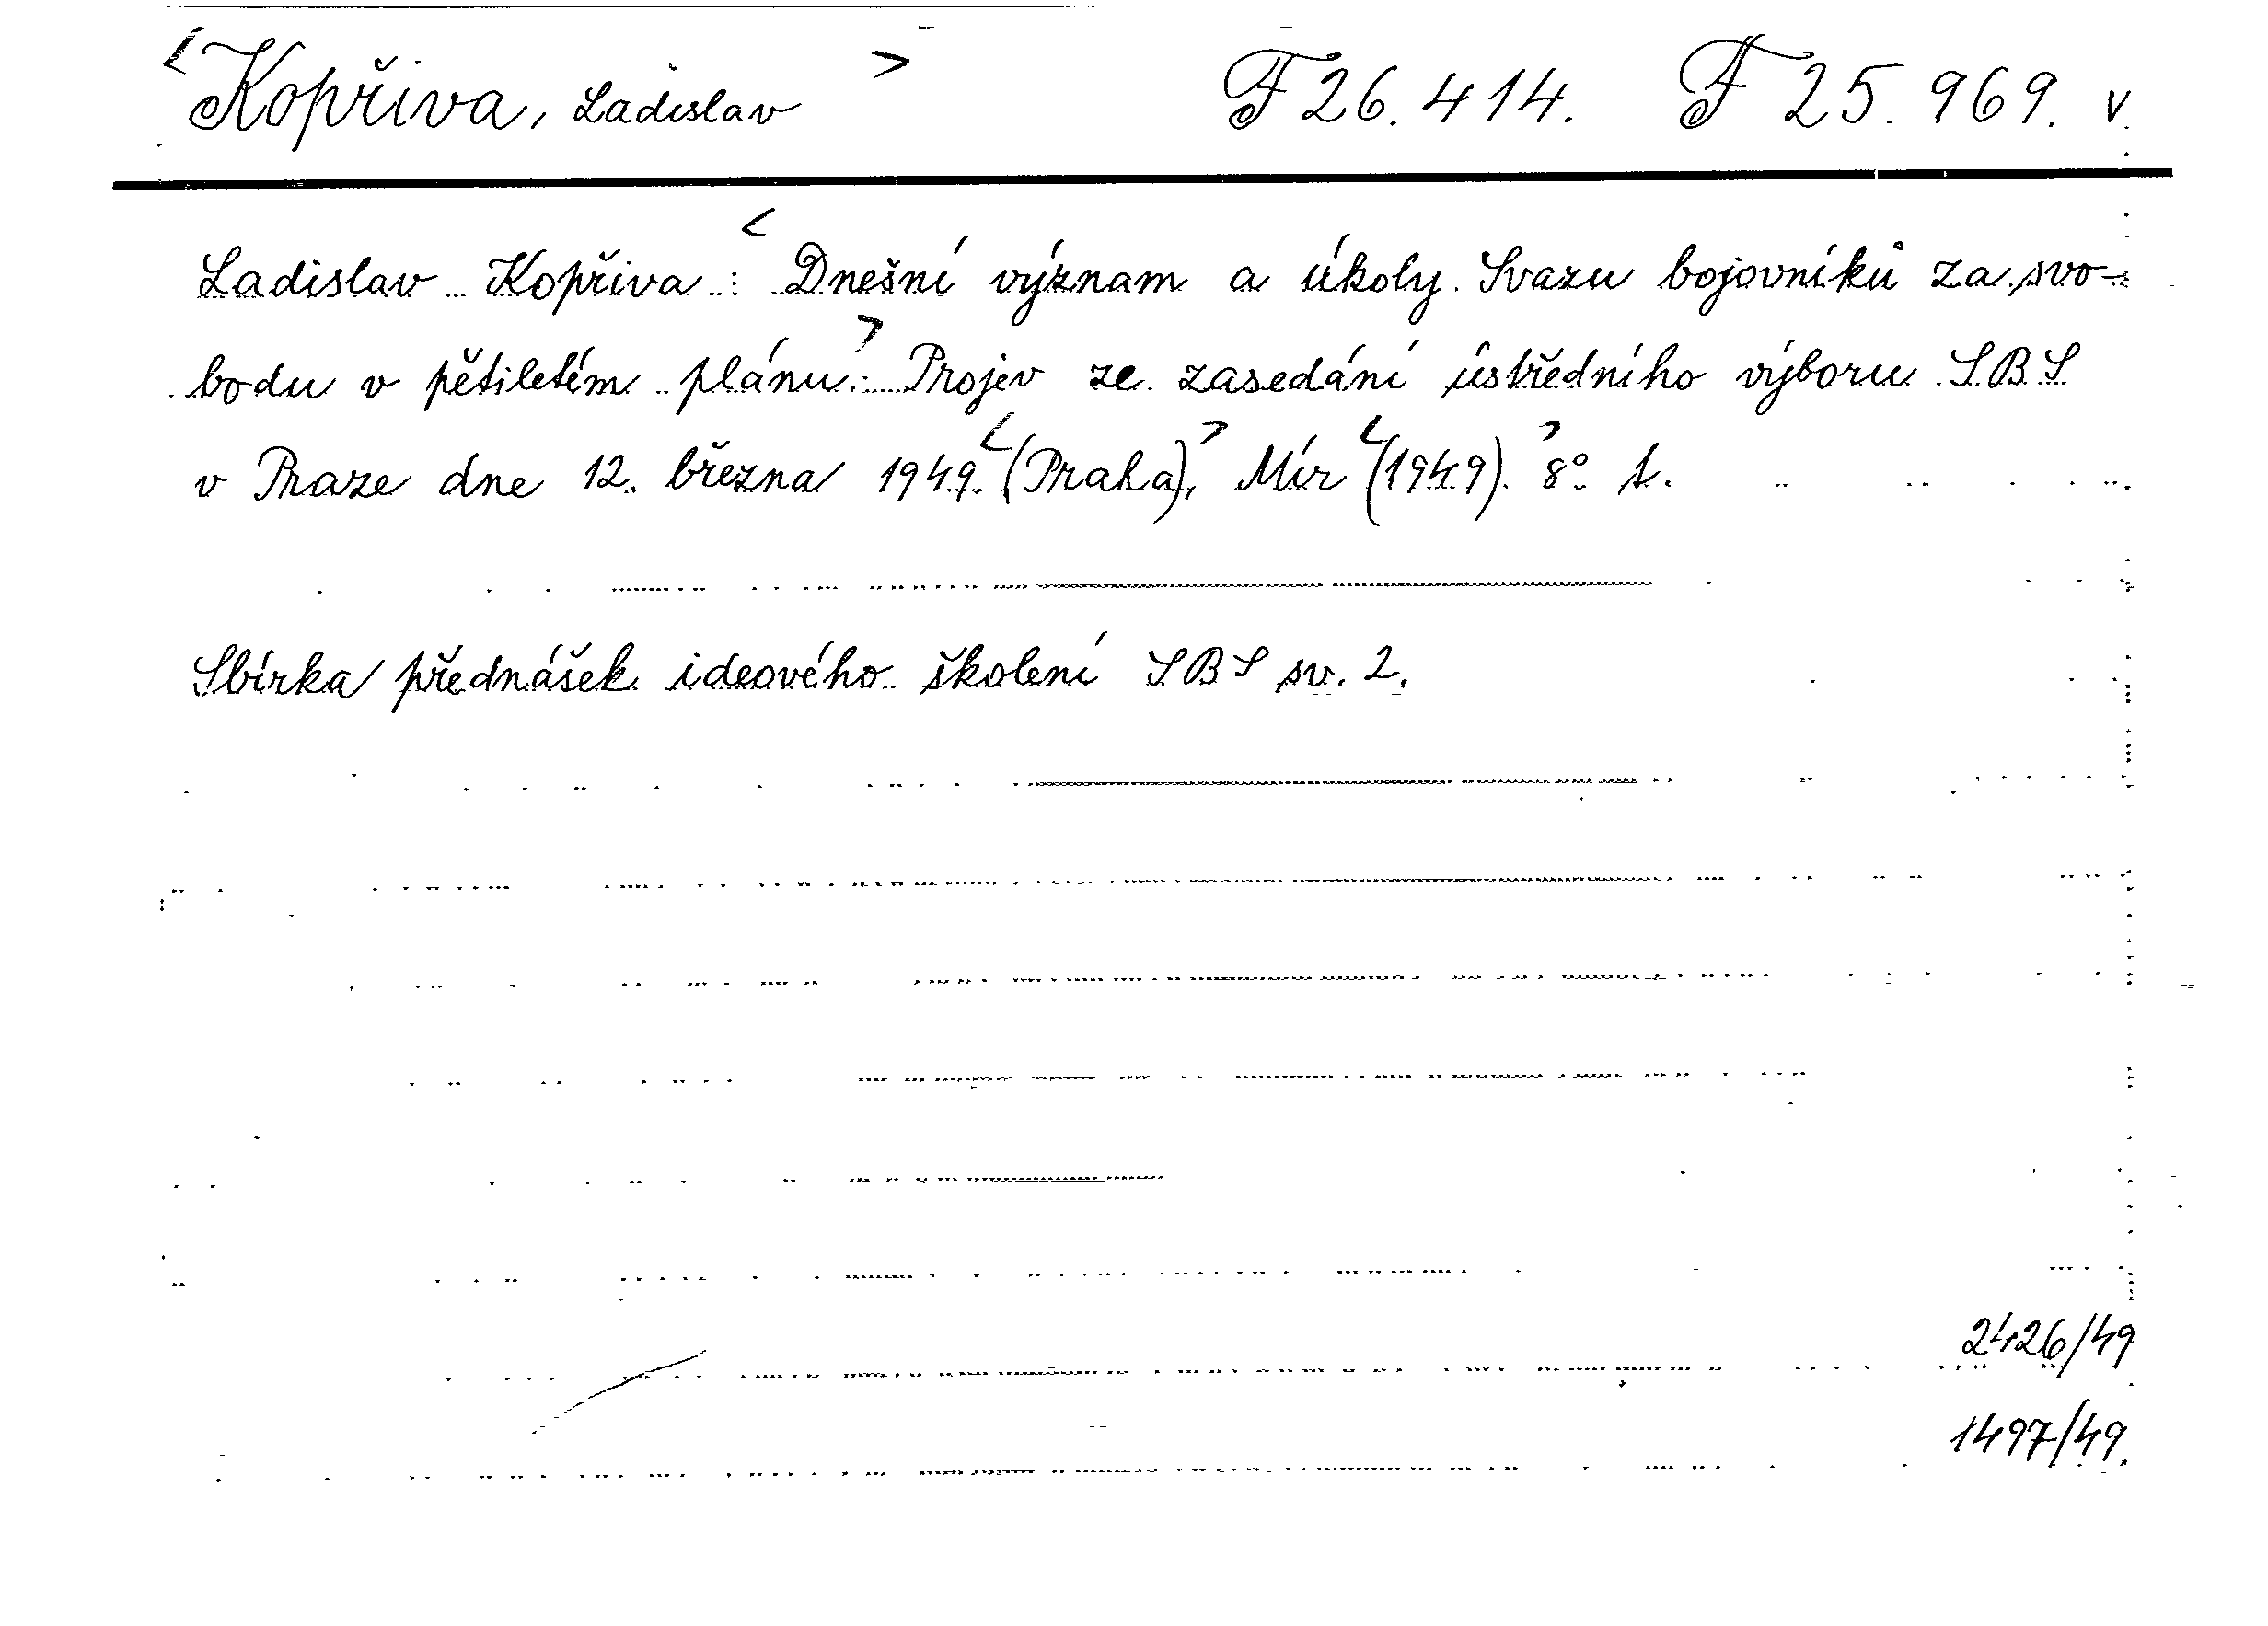 <Kopřiva, Ladislav> F 26.414. F 25.969. v.
Ladislav Kopřiva: <Dnešní význam a úkoly Svazu bojovníků za svo-
bodu v pětiletém plánu.> Projev ze zasedání ústředního výboru SBS
v Praze dne 12. března 1949. <(Praha),> Mír <(1949).> 8° s.
Sbírka přednášek ideového školení SBS sv. 2.
2426/49
1497/49.